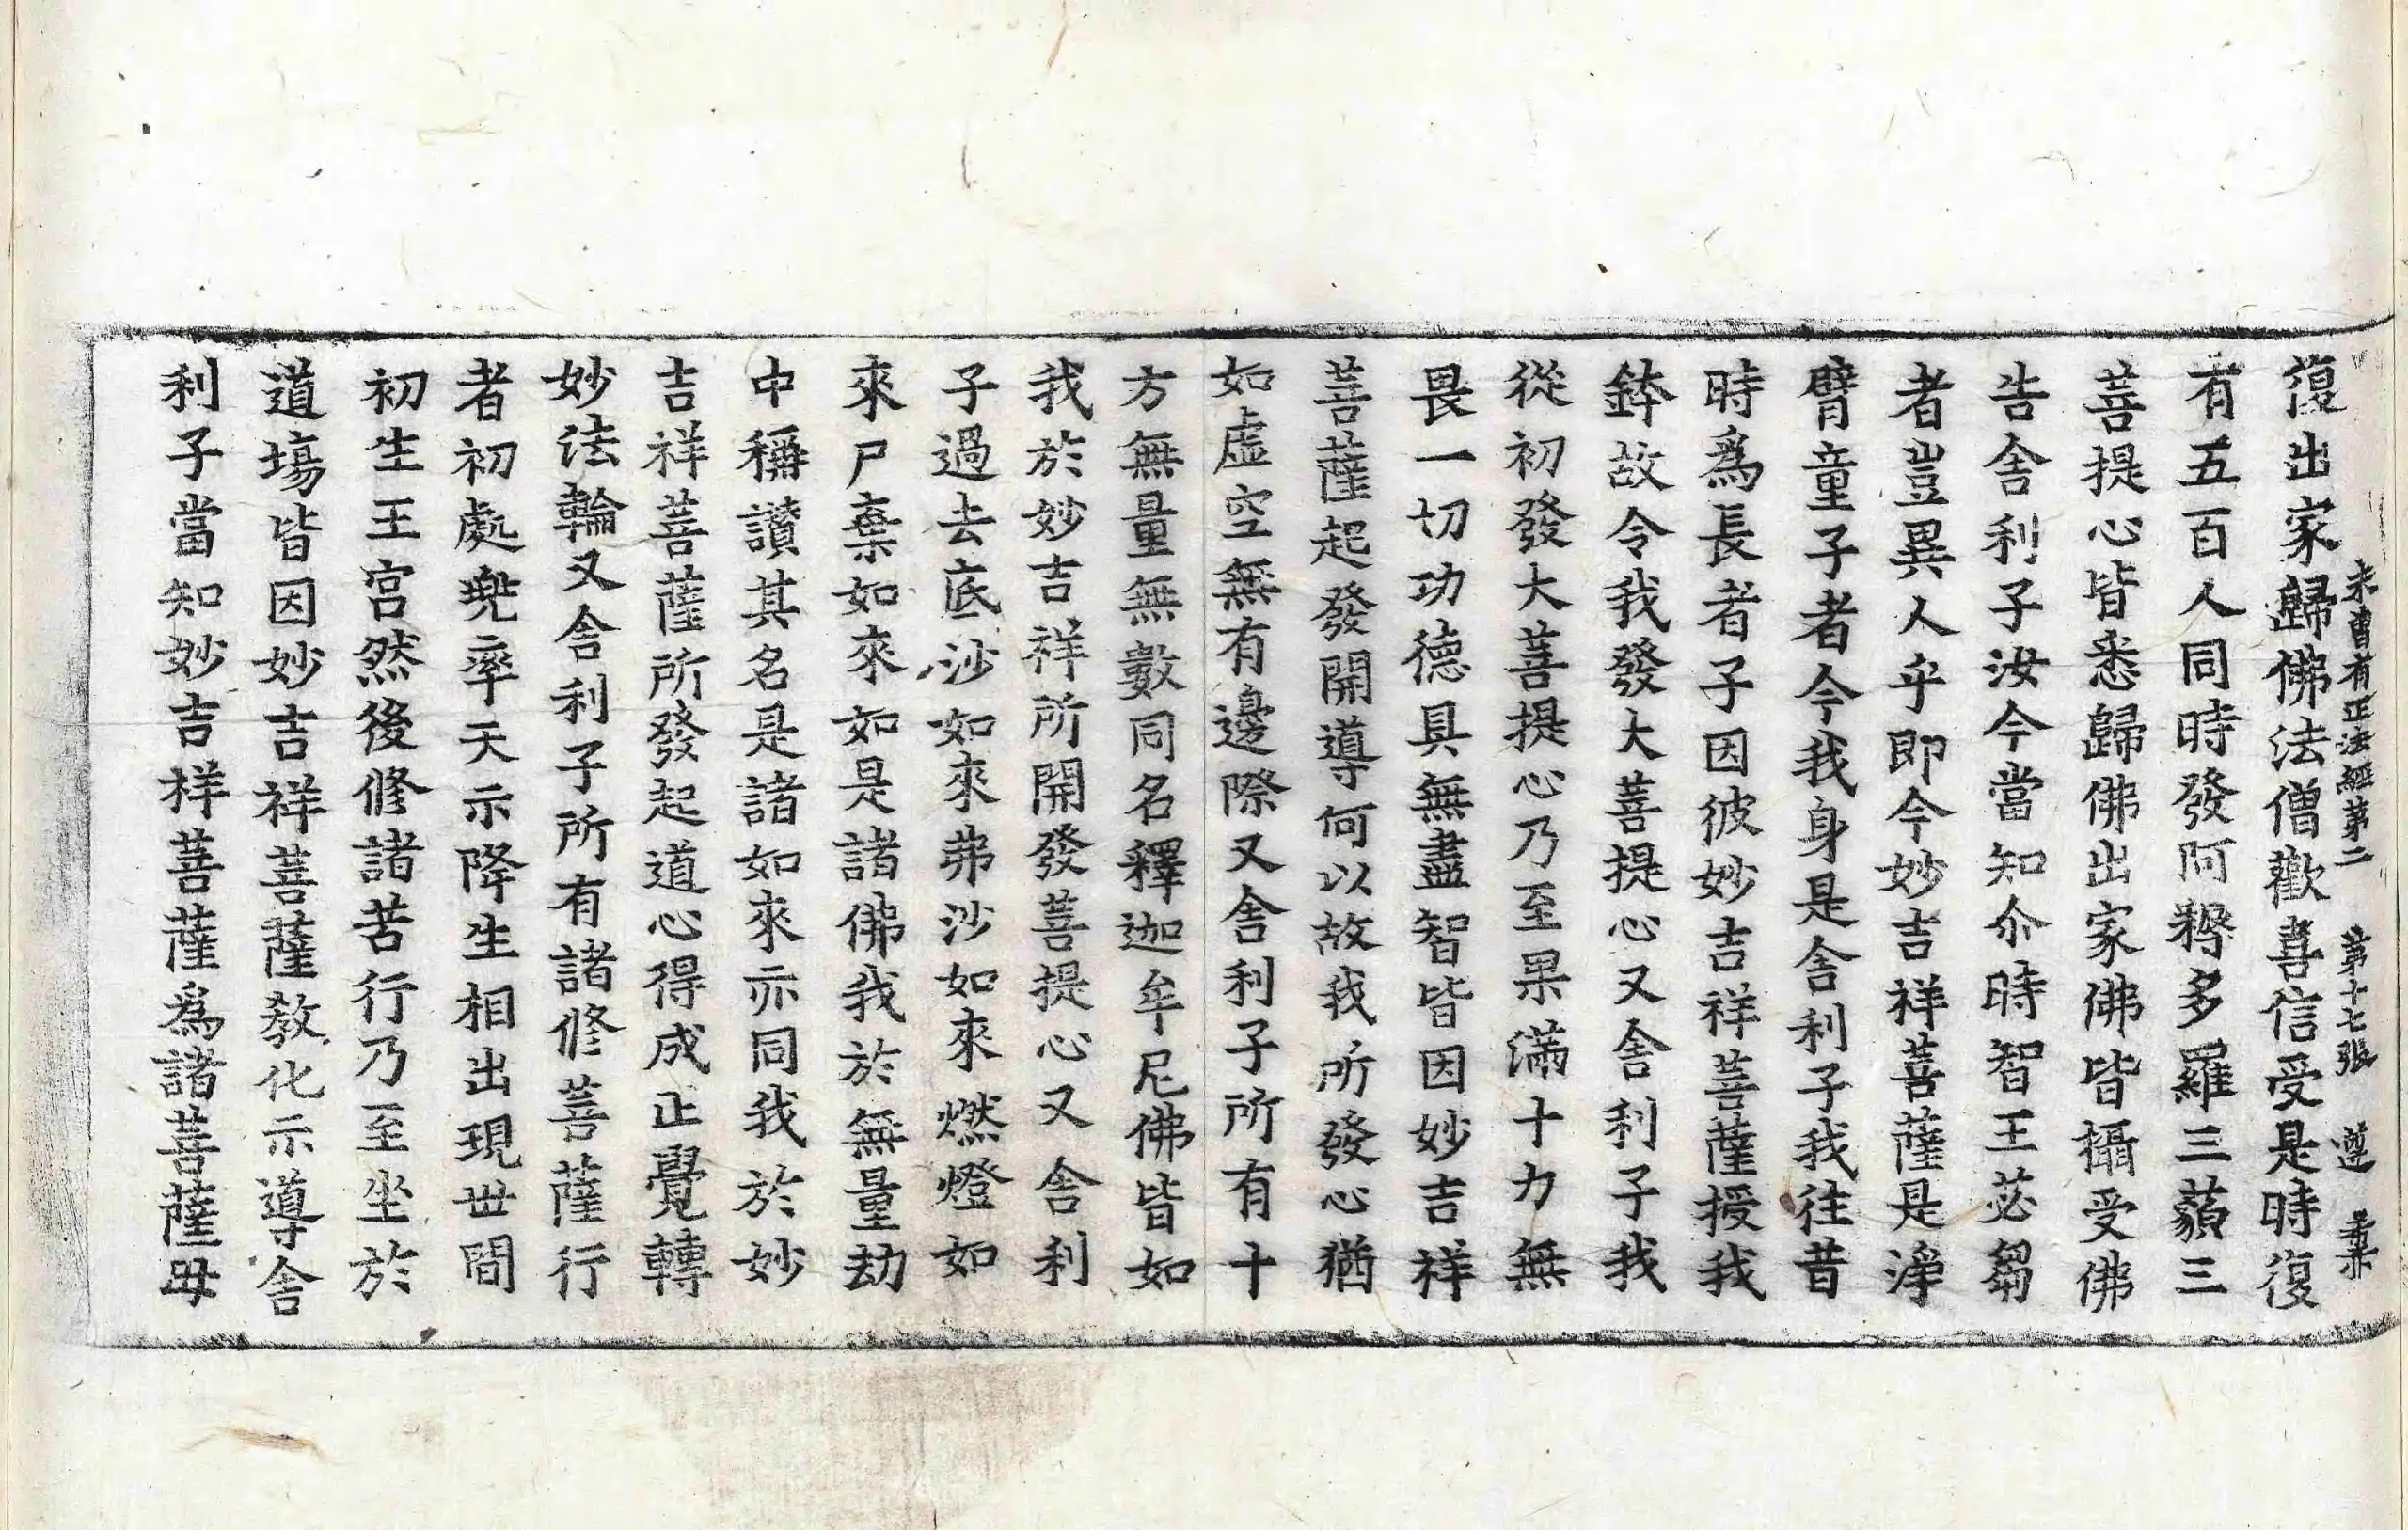 未曾有正法經第二 第十七張 遵 業
復出家歸佛法僧歡喜信受是時復
有五百人同時發阿耨多羅三藐三
菩提心皆悉歸佛出家佛皆攝受佛
告舍利子汝今當知尒時智王苾芻
者豈異人乎即今妙吉祥菩薩是淨
臂童子者今我身是舍利子我往昔
時爲長者子因彼妙吉祥菩薩授我
鉢故令我發大菩提心又舍利子我
從初發大菩提心乃至果滿十力無
畏一切功德具無盡智皆因妙吉祥
菩薩起發開導何以故我所發心猶
如虛空無有邊際又舍利子所有十
方無量無數同名釋迦牟尼佛皆如
我於妙吉祥所開發菩提心又舍利
子過去底沙如來弗沙如來燃燈如
來尸棄如來如是諸佛我於無量劫
中稱讃其名是諸如來亦同我於妙
吉祥菩薩所發起道心得成正覺轉
妙法輪又舍利子所有諸修菩薩行
者初處兠率天示降生相出現世間
初生王宮然後修諸苦行乃至坐於
道場皆因妙吉祥菩薩教化示導舍
利子當知妙吉祥菩薩爲諸菩薩母